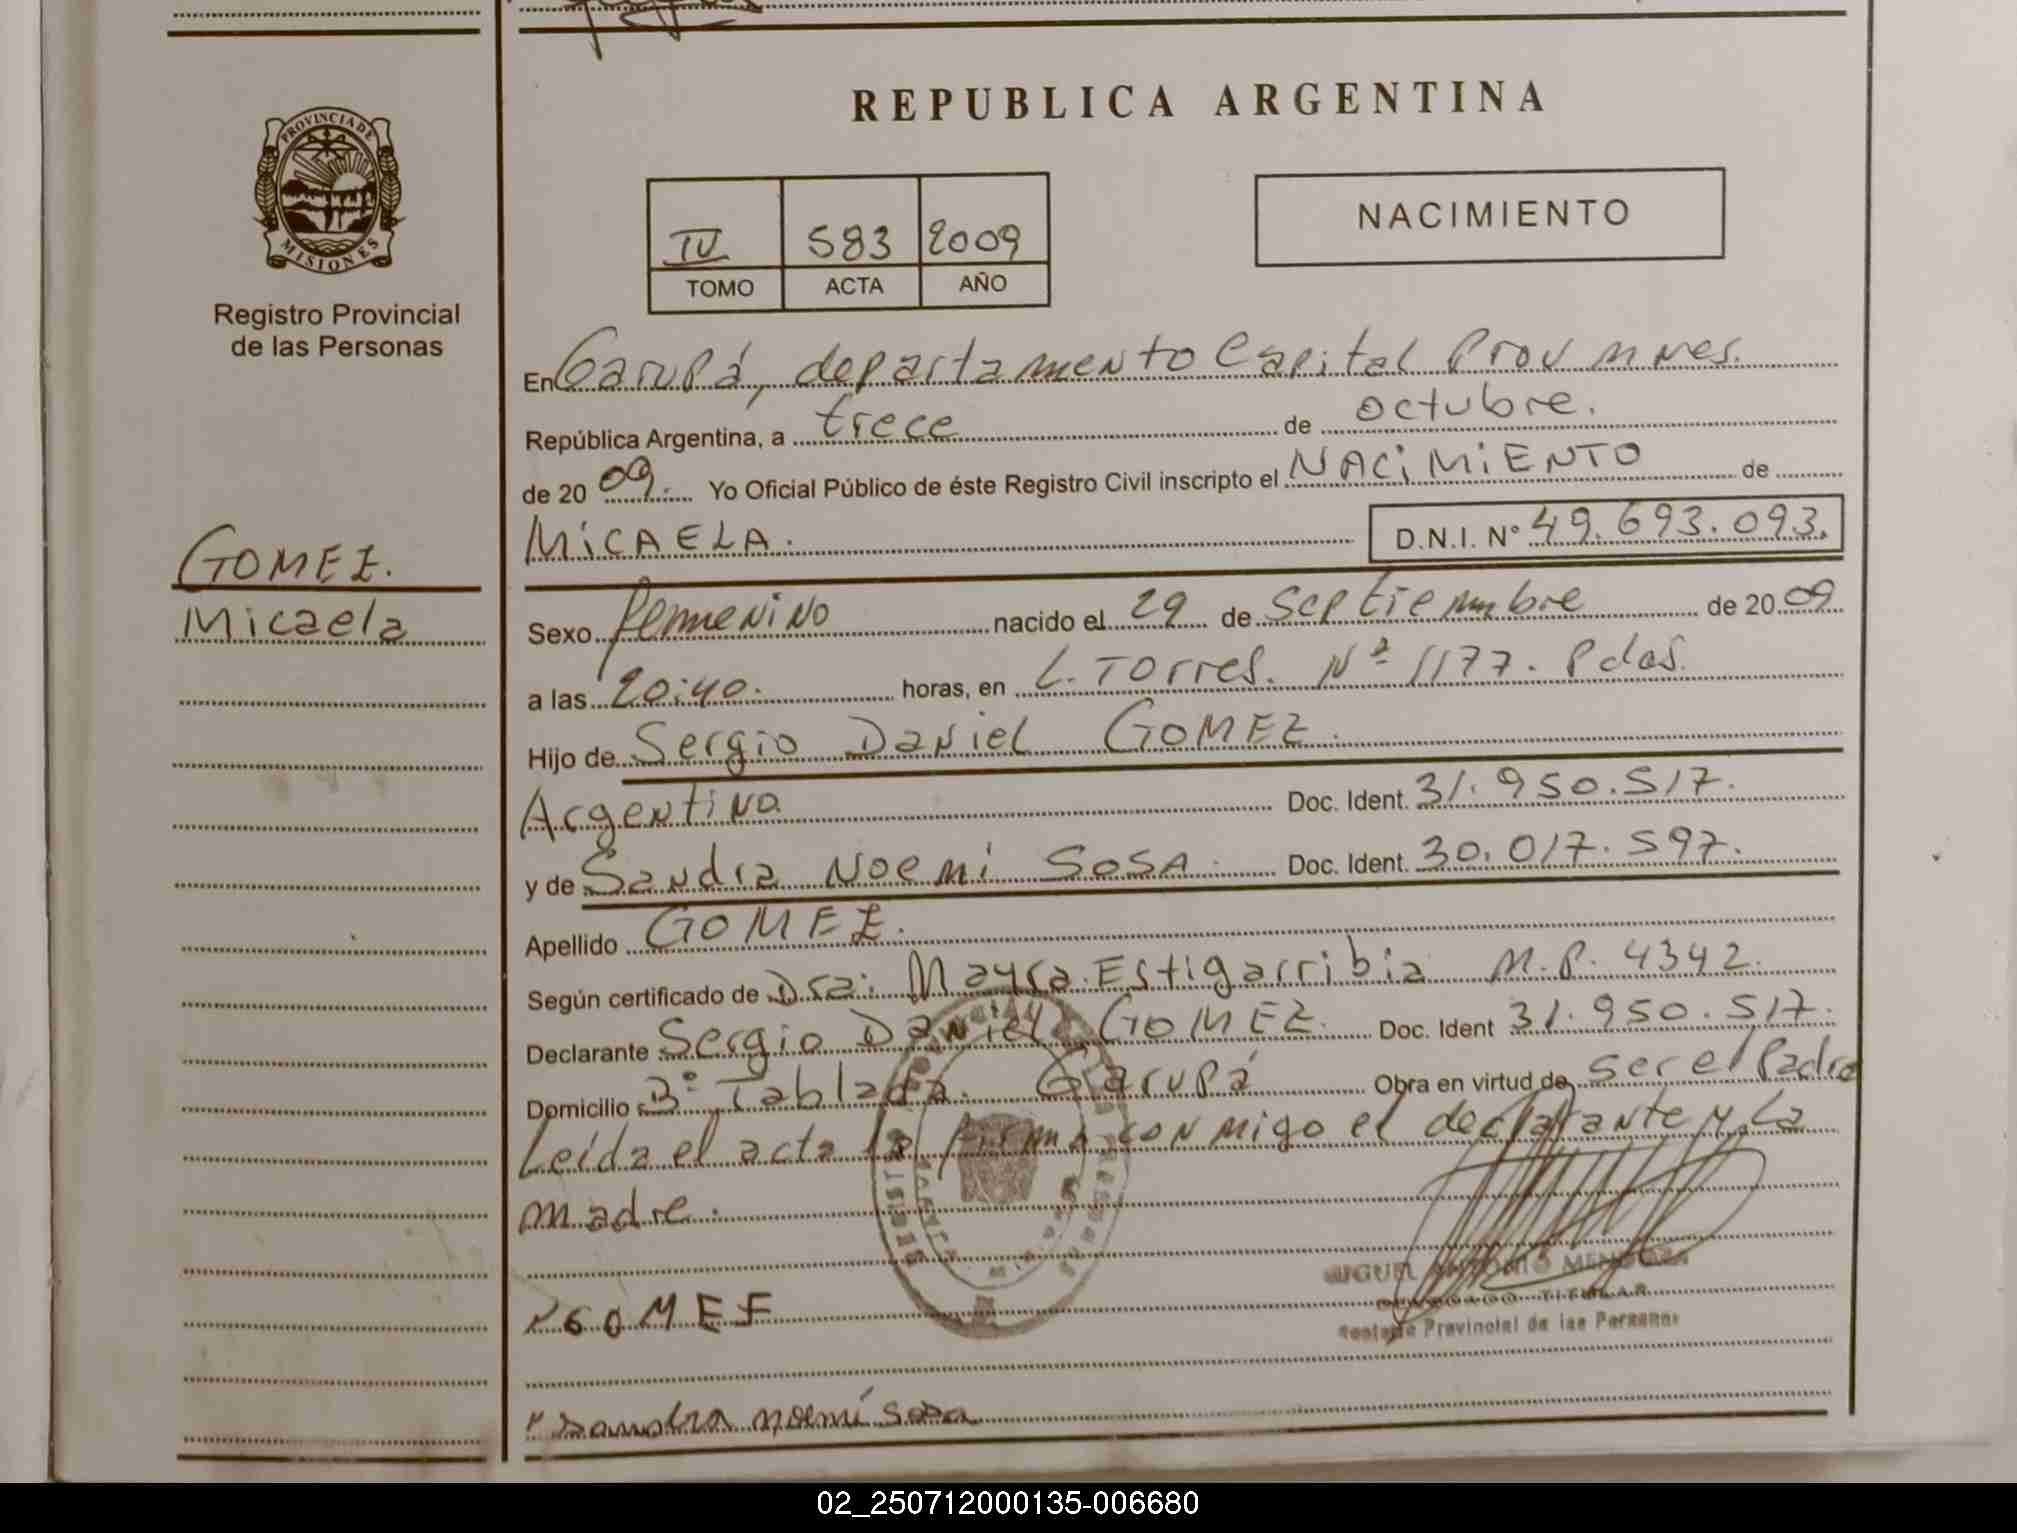 REPUBLICA ARGENTINA
PROVINCIA DE
MISIONES
Registro Provincial
de las Personas
IV 583 2009
TOMO ACTA AÑO
NACIMIENTO
En Garupá, departamento Capital Prov
República Argentina, a trece de octubre.
de 20 09. Yo Oficial Público de éste Registro Civil inscripto el NACIMIENTO de
MICAELA. D.N.I. N° 49.693.093.
GOMEZ.
Micaela
Sexo femenino nacido el 29 de Septiembre de 20 09
a las 20:40. horas, en L. Torres. Nº 1177. Pdas.
Hijo de Sergio Daniel GOMEZ.
Argentino Doc. Ident. 31.950.517.
y de Sandra Noemi SOSA. Doc. Ident. 30.017.597.
Apellido GOMEZ.
Según certificado de Dra: Mayra Estigarribia M.P. 4342.
Declarante Sergio Daniel GOMEZ. Doc. Ident 31.950.517.
Domicilio Bº Tablada. Garupá Obra en virtud de ser el Padre
Leída el acta la firma conmigo el declarante y La
madre.
MIGUEL ANTONIO MENDOZA
TITULAR
Provincial de las Personas
GOMEZ
Sandra noemí Sosa
02_250712000135-006680